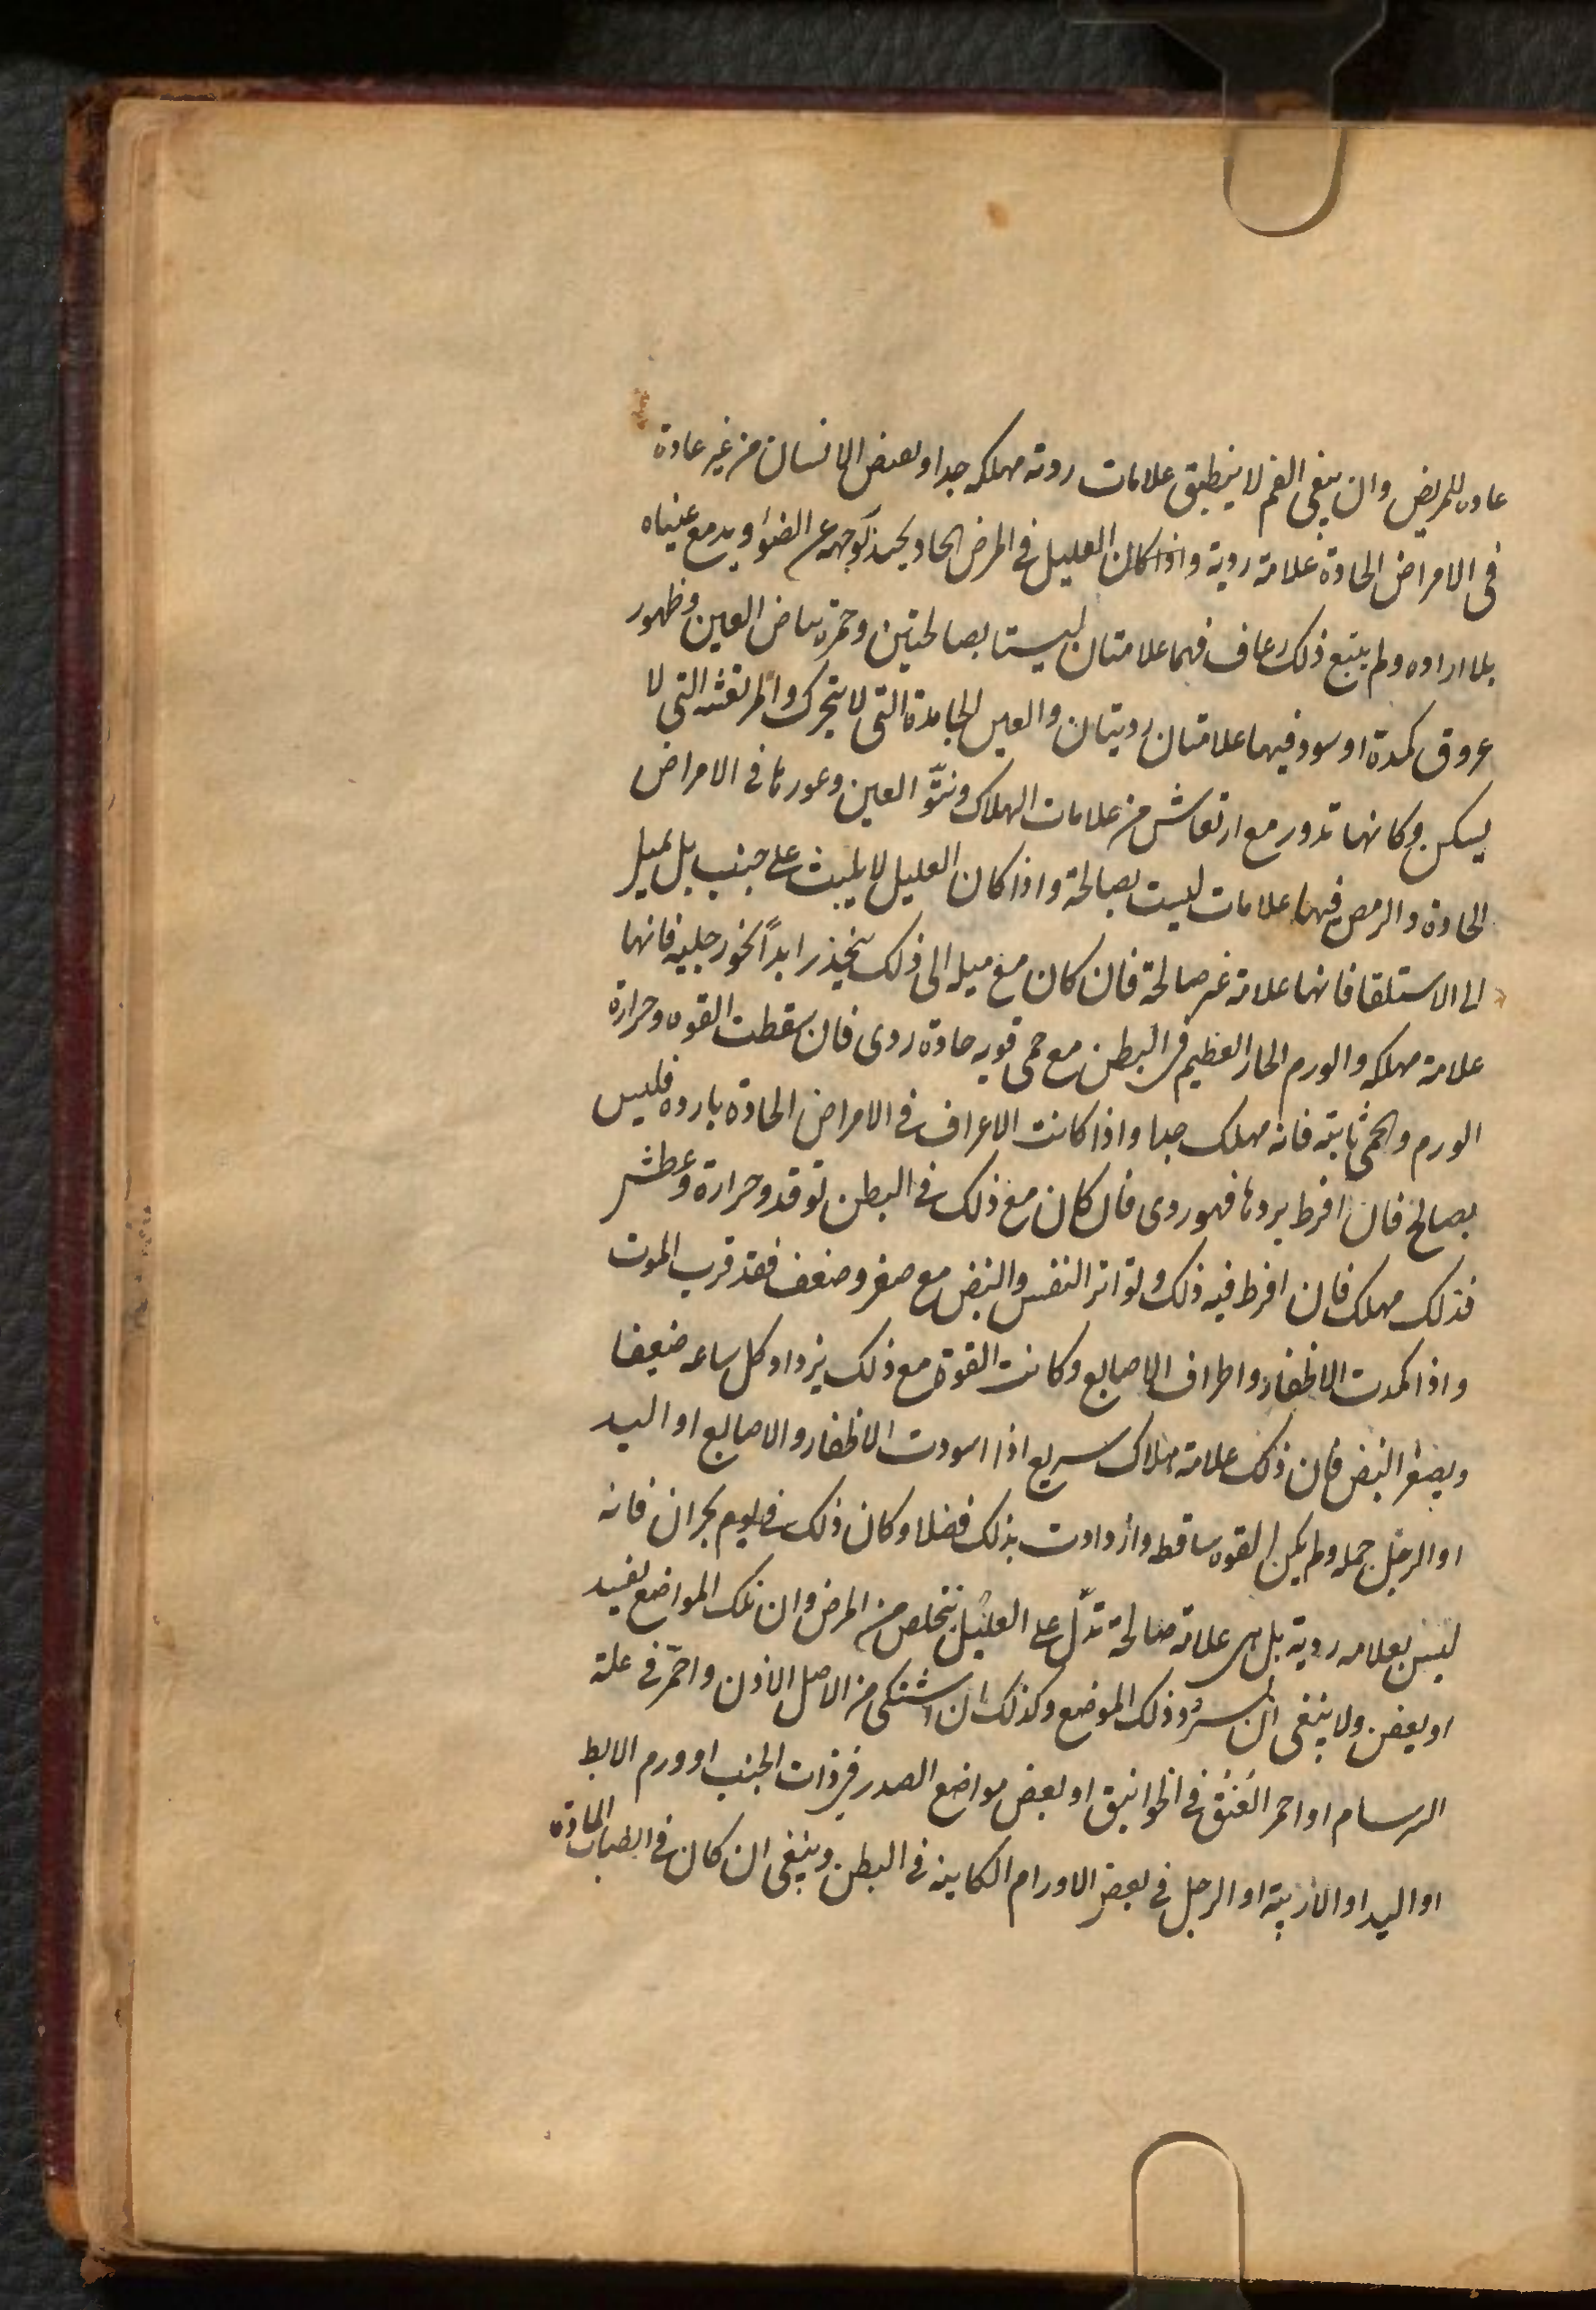 عاده للمريض وان يبقى الفم لا ينطبق علامات رديه مهلكه جدا وبعض الانسان من غير عادة
فى الامراض الحادة علامة ردية واذا كان العليل فى المرض الحاد يحيد بوجهه عن الضوء ويدمع عيناه
بلا اراده ولم يتبع ذلك رعاف فهما علامتان ليستا بصالحتين وحمرة بياض العين وظهور
عروق كمدة او سود فيهما علامتان رديتان والعين الجامدة التى لا يتحرك والمرتعشه التى لا
يسكن وكانها تدور مع ارتعاش من علامات الهلاك ونتوّ العين وغورها فى الامراض
الحادة والرمص فيها علامات ليست بصالحة واذا كان العليل لا يلبث على جنب بل يميل
الى الاستلقا فانها علامة غير صالحة فان كان مع ميله الى ذلك ينحدر ابداً نحو رجليه فانها
علامة مهلكه والورم الحار العظيم فى البطن مع حمى قويه حادة ردى فان سقطت القوه وحرارة
الورم والحمى ثابتة فانه مهلك جدا واذا كانت الاطراف فى الامراض الحادة بارده فليس
بصالح فان افرط بردها فهو ردى فان كان مع ذلك فى البطن توقد وحرارة وعطش
فذلك مهلك فان افرط فيه ذلك وتواتر النفس والنبض مع صغر وضعف فقد قرب الموت
واذا كمدت الاظفار واطراف الاصابع وكانت القوة مع ذلك يزداد كل ساعه ضعفا
ويصغر النبض فان ذلك علامة هلاك سريع اذا اسودت الاظفار والاصابع او اليد
او الرجل جمله ولم يكن القوه ساقطه وازدادت بذلك فضلا وكان ذلك فى يوم بحران فانه
ليس بعلامه ردية بل هى علامة صالحة تدلّ على العليل يتخلص من المرض وان تلك المواضع يفسد
او يعفن ولا ينبغى ان ذلك الموضع وكذلك ان اشتكى من الاصل الاذن واحمرّ فى علة
البرسام او احمر العُنُق فى الخوانيق او بعض مواضع الصدر فى ذات الجنب او ورم الابط
او اليد او الاربية او الرجل فى بعض الاورام الكاينه فى البطن وينبغى ان كان فى الحادة